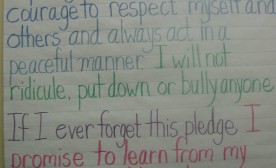 courage to respect myself and
others and always act in a
peaceful manner I will not
ridicule, put down or bully anyone
If I ever forget this pledge I
promise to learn from my